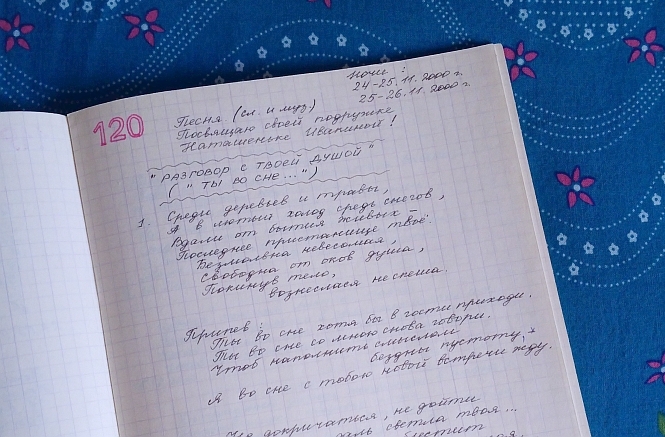 120
ночи :
24-25.11.2000 г.
25-26.11.2000 г.
Песня. (сл. и муз.)
Посвящаю своей подружке
Наташеньке Иваниной !
" РАЗГОВОР С ТВОЕЙ ДУШОЙ "
( " ТЫ ВО СНЕ ... " )
1. Среди деревьев и травы,
А в лютый холод средь снегов,
Вдали от бытия живых -
Последнее пристанище твоё.
Безмолвна невесомая,
Свободна от оков душа,
Покинув тело,
вознеслася не спеша.
Припев :
Ты во сне хотя бы в гости приходи.
Ты во сне со мною снова говори.
Чтоб наполнить смыслом
бездны пустоту,
Я во сне с тобою новой встречи жду.
Не докричаться, не дойти
светла твоя ...
блестит